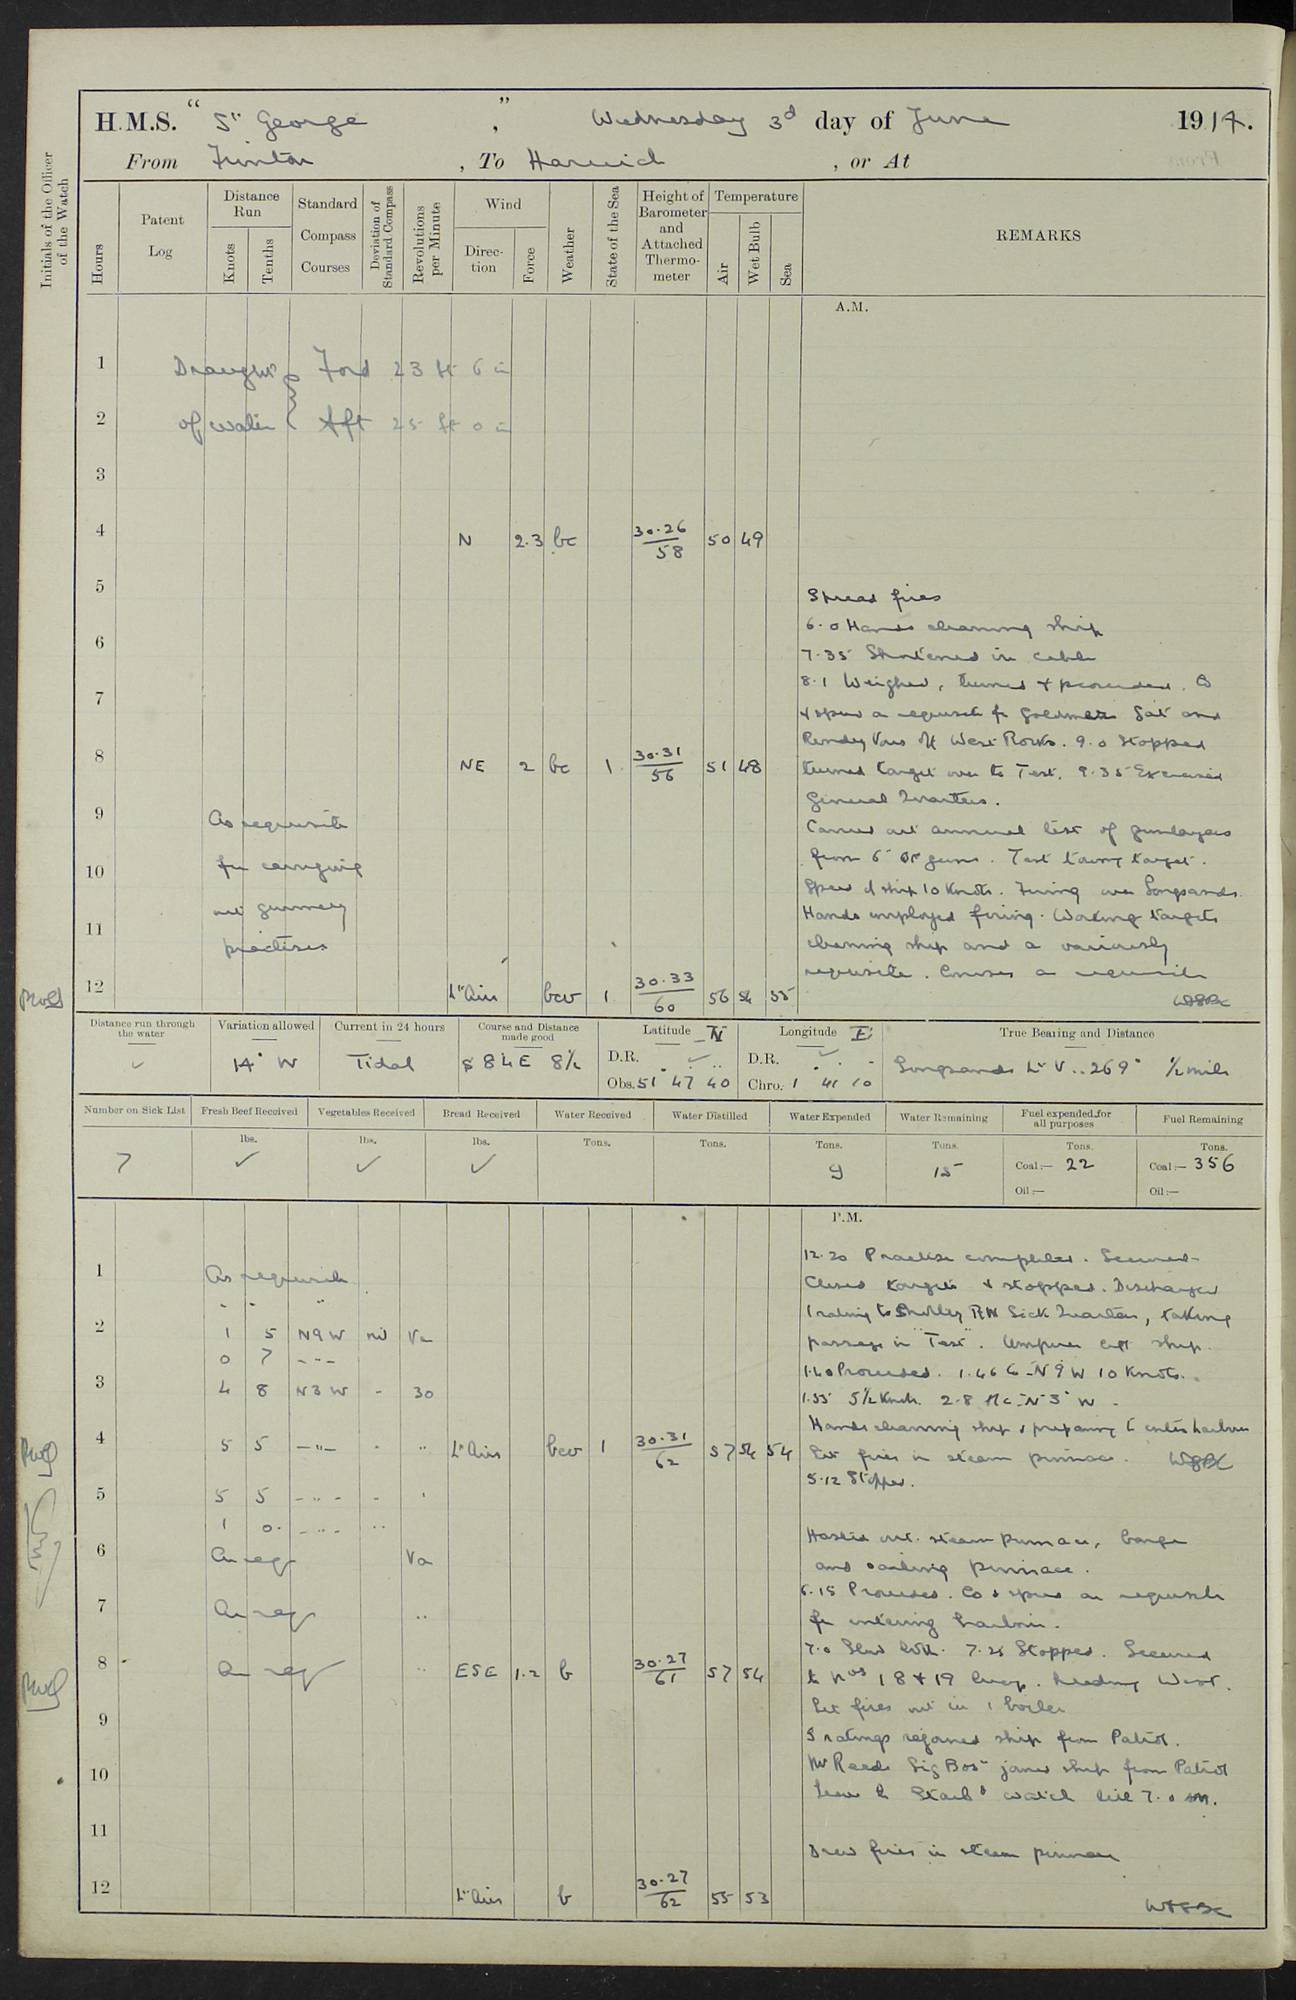 H.M.S. "St George", Wednesday 3d day of June 1914.
From Frinton, To Harwich, or At
Initials of the Officer of the Watch
Hours
Patent Log
Distance Run
Knots
Tenths
Standard Compass Courses
Deviation of Standard Compass
Revolutions per Minute
Wind
Direction
Force
Weather
State of the Sea
Height of Barometer and Attached Thermometer
Temperature
Air
Wet Bulb
Sea
REMARKS
A.M.
1 Draught Ford 23 ft 6 in
2 of water Aft 25 ft 0 in
3
4 N 2.3 bc 30.26 58 50 49
5 Spread fires
6 6.0 Hands cleaning ship
7.35 Shortened in cable
7 8.1 Weighed, turned & proceeded. Co
& speed as requisite for Goldmer Gat and
Rendezvous off West Rocks. 9.0 Stopped
8 NE 2 bc 1 30.31 56 51 48 turned target over to Test. 9.35 Exercised
General Quarters.
9 As requisite Carried out annual test of gunlayers
10 for carrying from 6" QF guns. Test towing target.
Speed of ship 10 Knots. Firing over Longsands.
11 out gunnery Hands employed firing. Working targets
practises cleaning ship and as variously
requisite. Courses as requisite
12 Lt Airs bcv 1 30.33 60 56 54 55
Distance run through the water
Variation allowed 14° W
Current in 24 hours Tidal
Course and Distance made good S 84 E 8½
Latitude N
D.R.
Obs. 51 47 40
Longitude E
D.R.
Chro. 1 41 10
True Bearing and Distance
Longsands Lt V .. 269° ½ mile
Number on Sick List 7
Fresh Beef Received lbs. ✓
Vegetables Received lbs. ✓
Bread Received lbs. ✓
Water Received Tons.
Water Distilled Tons.
Water Expended Tons. 9
Water Remaining Tons. 15
Fuel expended for all purposes Tons. Coal:— 22 Oil:—
Fuel Remaining Tons. Coal:— 356 Oil:—
P.M.
12.20 Practise completed. Secured
1 As requisite Closed targets & stopped. Discharged
1 rating to Shotley RN Sick Quarters, taking
2 1 5 N9W nil Va passage in "Test". Umpires left ship.
0 7 1.40 Proceeded. 1.46 C-N9°W 10 Knots.
3 4 8 N3W - 30 1.55 5½ Knots. 2.8 A/c-N3°W.
Hands cleaning ship & preparing to enter harbour
4 5 5 Lt Airs bcv 1 30.31 62 57 54 54 Lit fires in steam pinnace.
5.12 Stopped.
5 5 5
1 0 Hoisted out steam pinnace, barge
6 As req Va and sailing pinnace.
6.15 Proceeded. Co & speed as requisite
7 As req for entering harbour.
7.0 7.25 Stopped. Secured
8 As req ESE 1.2 b 30.27 61 57 54 to Nos 18 & 19 buoy. heading West.
Let fires out in 1 boiler
9 5 ratings rejoined ship from Patrol.
10 Mr Reeds Sig Bosn joined ship from Patrol
Leave to Starbd watch till 7.0 am.
11 Drew fires in steam pinnace
12 Lt Airs b 30.27 62 55 53